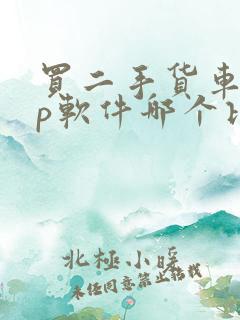 買二手货車
p軟件哪个
北極小暖
未经同意禁止转载